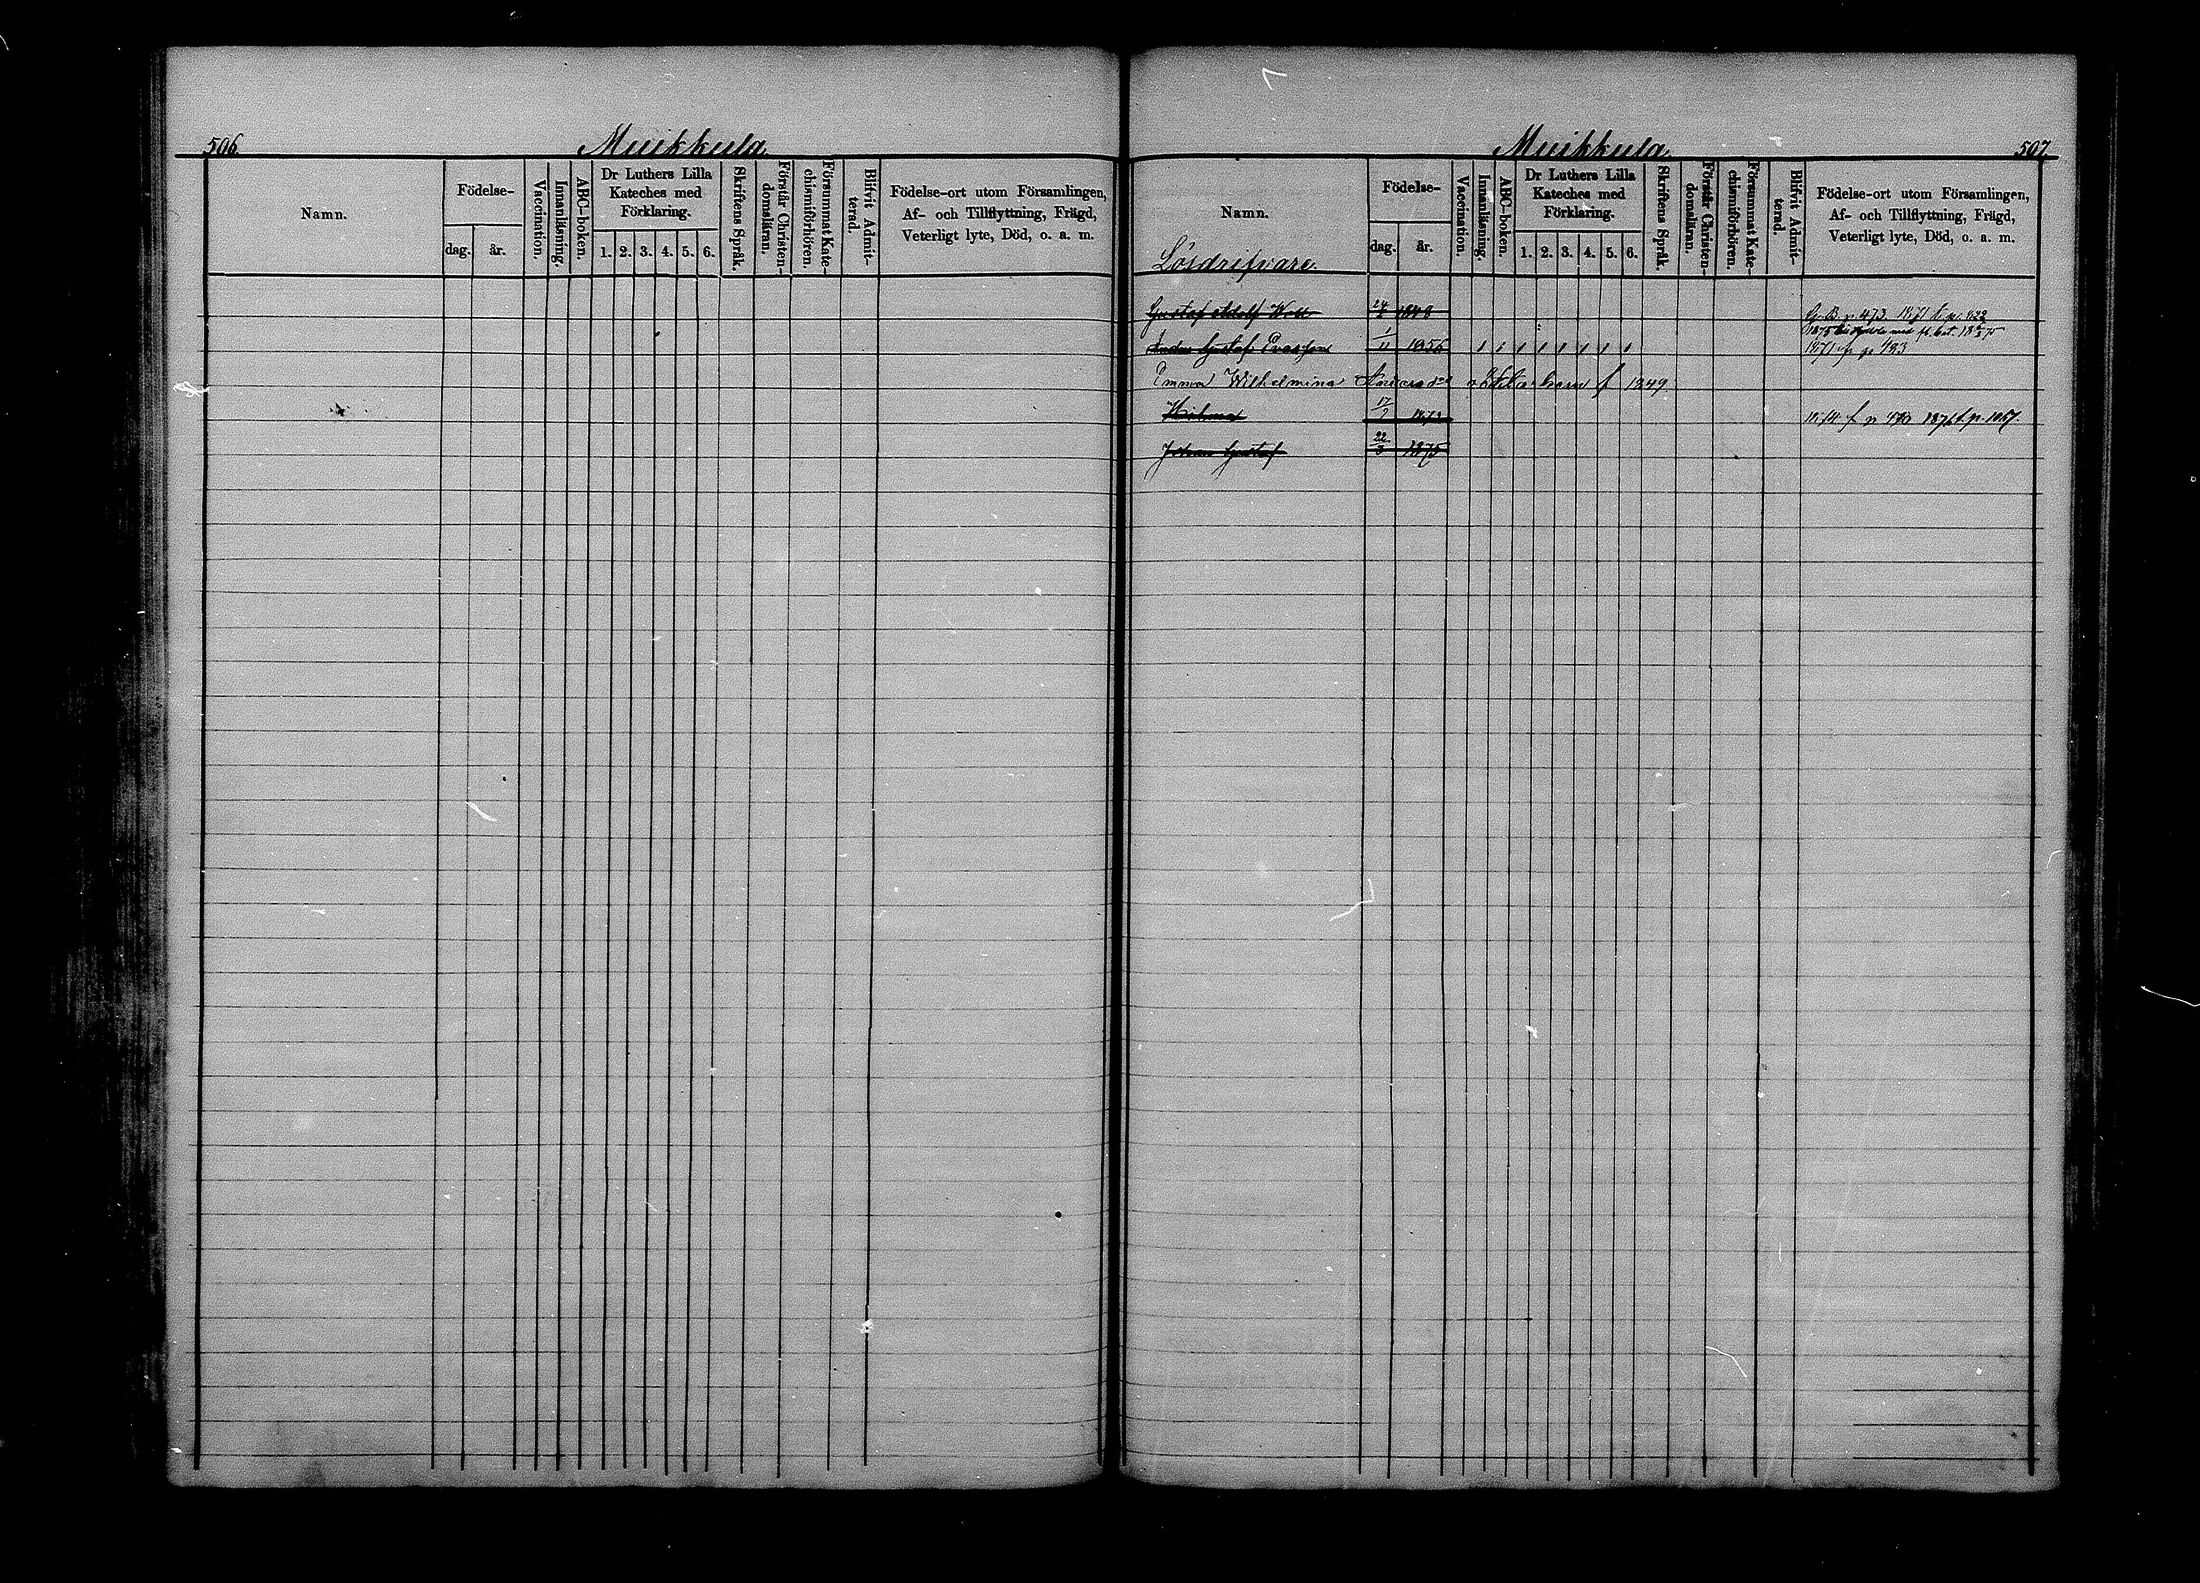 506.
Muikkula.
Namn.
Födelse-
dag.
år.
Vaccination.
Innanläsning.
ABC-boken.
Dr Luthers Lilla
Kateches med
Förklaring.
1. 2. 3. 4. 5. 6.
Skriftens Språk.
Förstår Christen-
domsläran.
Försummat Kate-
chismiförhören.
Blifvit Admit-
terad.
Födelse-ort utom Församlingen,
Af- och Tillflyttning, Frägd,
Veterligt lyte, Död, o. a. m.
Muikkula.
507.
Namn.
Lösdrifvare.
Födelse-
dag.
år.
Vaccination.
Innanläsning.
ABC-boken.
Dr Luthers Lilla
Kateches med
Förklaring.
1. 2. 3. 4. 5. 6.
Skriftens Språk.
Förstår Christen-
domsläran.
Försummat Kate-
chismiförhören.
Blifvit Admit-
terad.
Födelse-ort utom Församlingen,
Af- och Tillflyttning, Frägd,
Veterligt lyte, Död, o. a. m.
Gustaf Adolf 1848 p. 473. 1871 t. p.
1875
Gustaf 1/11 1856 1871 p. 483
Emma Wilhelmina barn f 1849
Hilma 17/2 f p 1876 t. p. 1057.
Johan Gustaf 22/3 1875